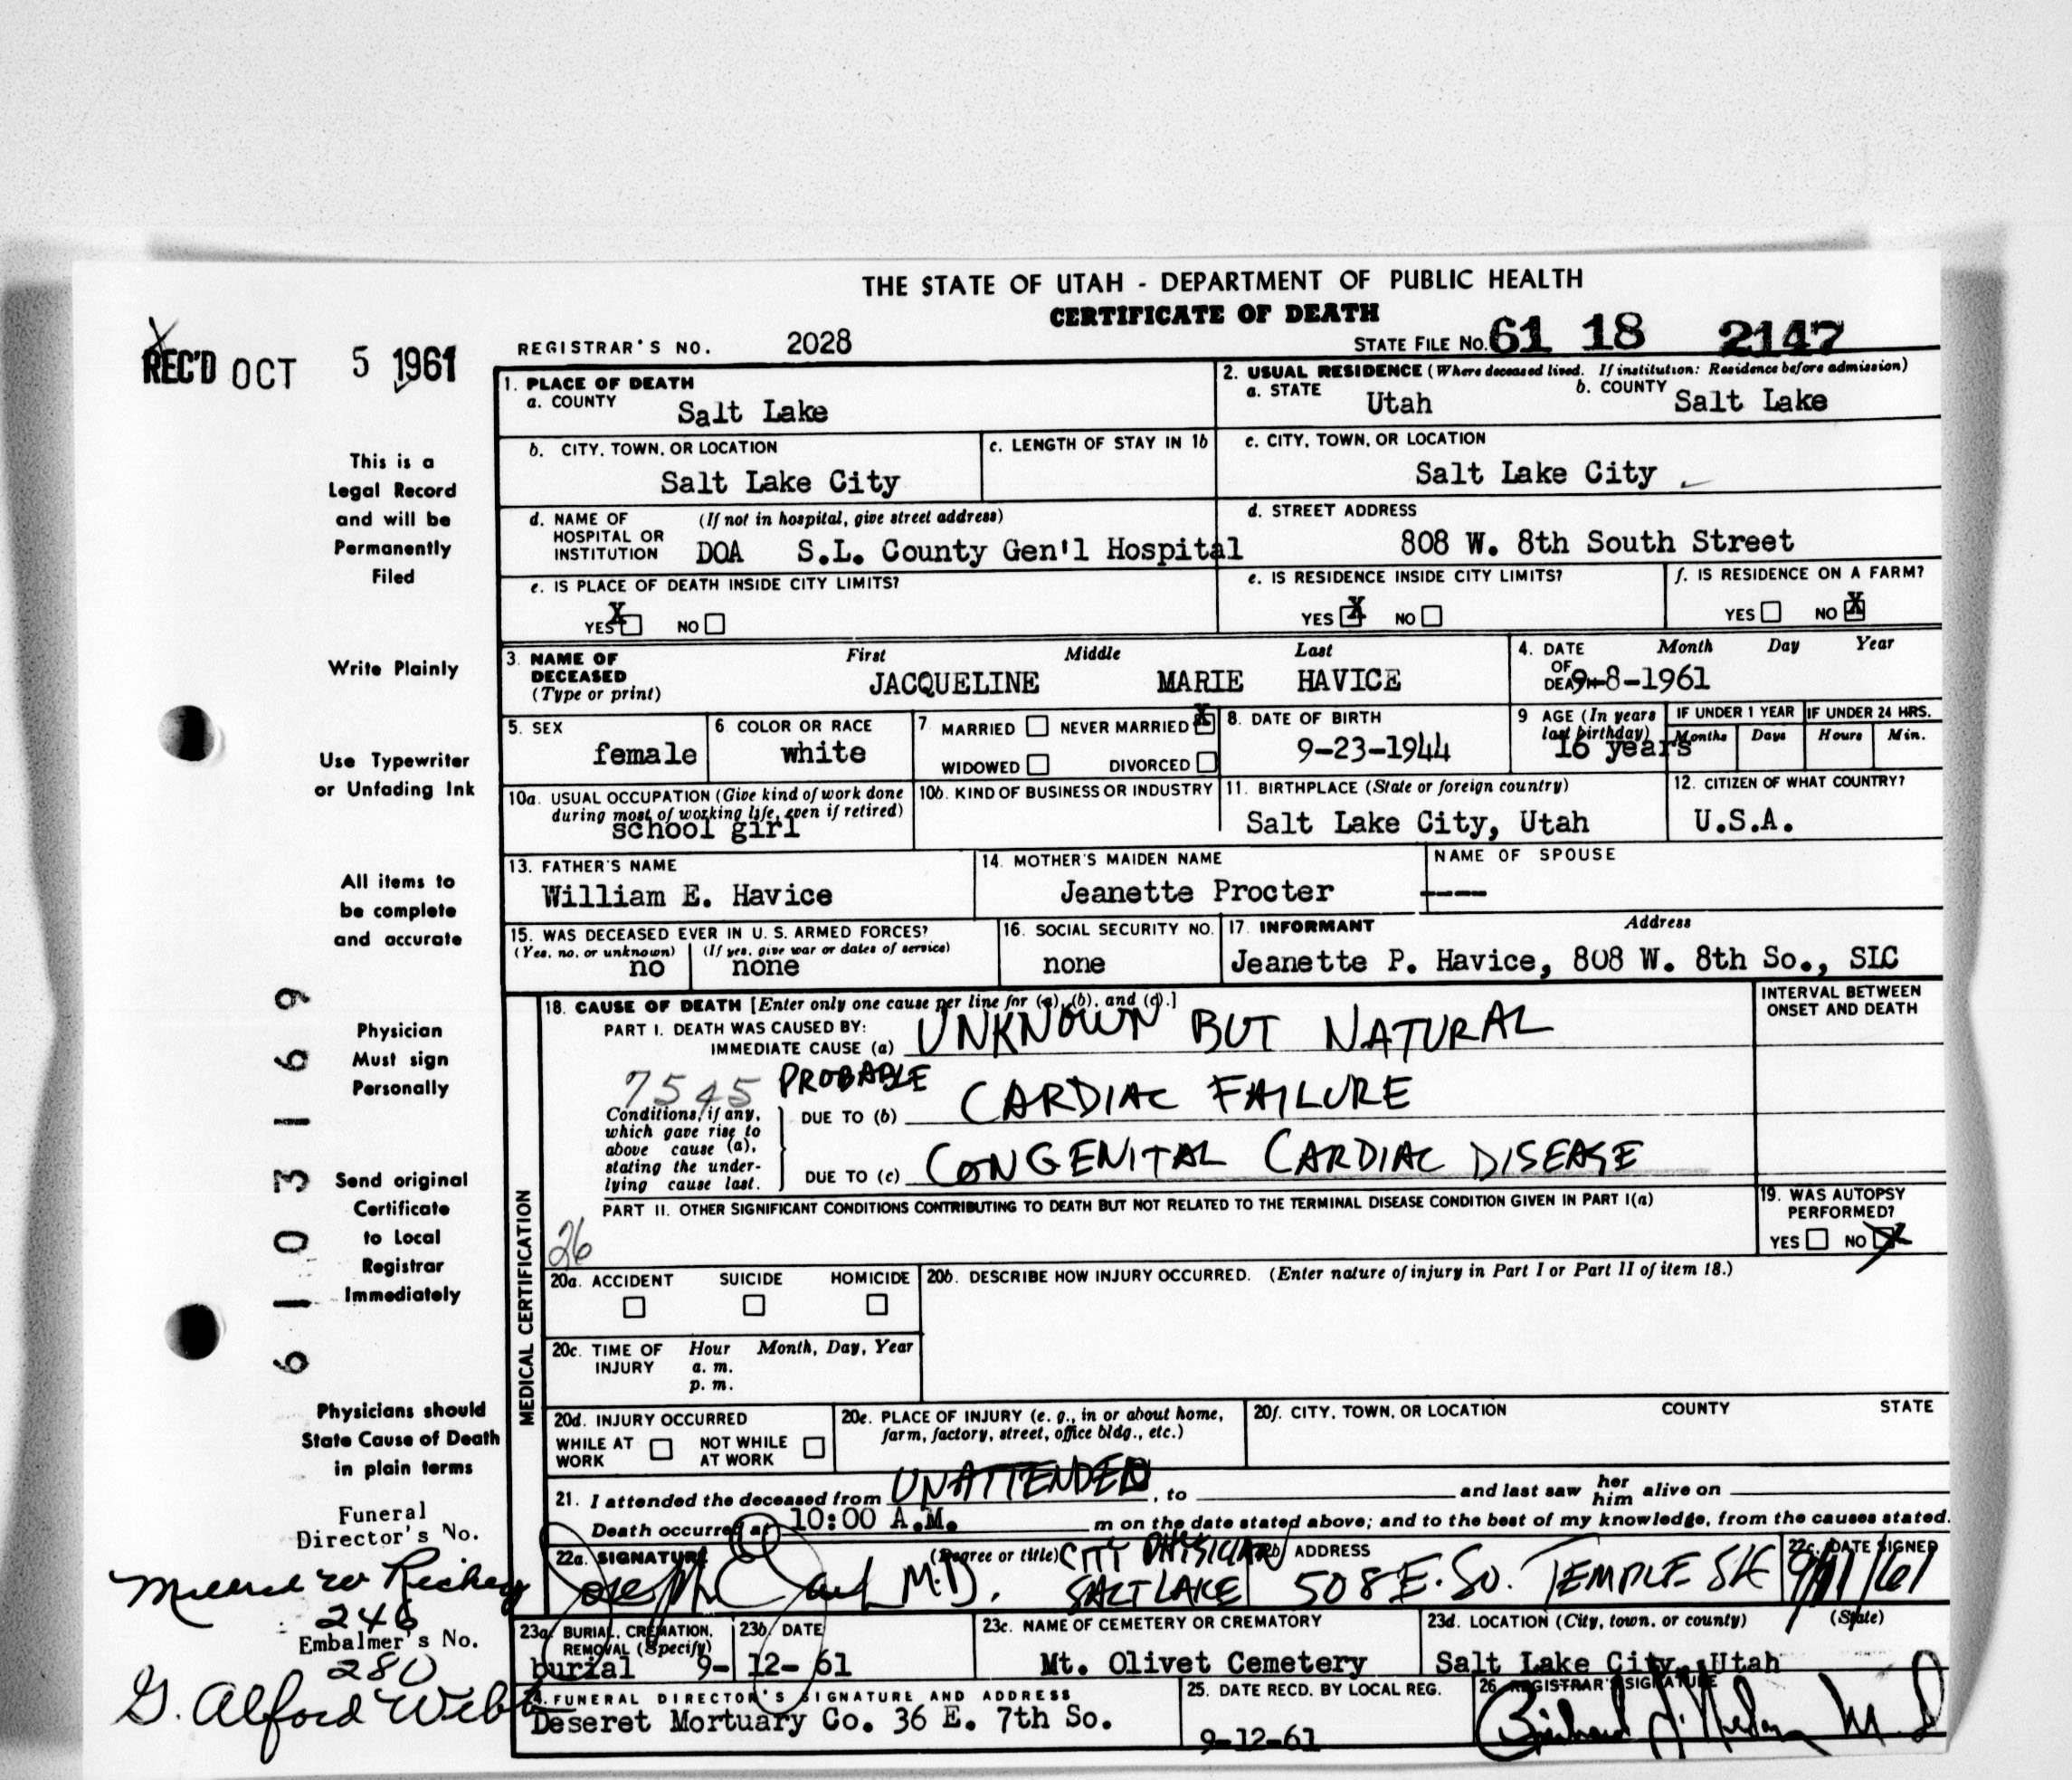 THE STATE OF UTAH - DEPARTMENT OF PUBLIC HEALTH
CERTIFICATE OF DEATH
REC'D OCT 5 1961
REGISTRAR'S NO. 2028
STATE FILE NO. 61 18 2147
This is a
Legal Record
and will be
Permanently
Filed
Write Plainly
Use Typewriter
or Unfading Ink
All items to
be complete
and accurate
Physician
Must sign
Personally
Send original
Certificate
to Local
Registrar
Immediately
Physicians should
State Cause of Death
in plain terms
Funeral
Director's No.
246
Embalmer's No.
280
G. Alford Webb
61031169
1. PLACE OF DEATH
a. COUNTY Salt Lake
2. USUAL RESIDENCE (Where deceased lived. If institution: Residence before admission)
a. STATE Utah b. COUNTY Salt Lake
b. CITY, TOWN, OR LOCATION Salt Lake City
c. LENGTH OF STAY IN 1b
c. CITY, TOWN, OR LOCATION Salt Lake City
d. NAME OF HOSPITAL OR INSTITUTION (If not in hospital, give street address)
DOA S.L. County Gen'l Hospital
d. STREET ADDRESS
808 W. 8th South Street
e. IS PLACE OF DEATH INSIDE CITY LIMITS?
YES X NO
e. IS RESIDENCE INSIDE CITY LIMITS?
YES X NO
f. IS RESIDENCE ON A FARM?
YES NO X
3. NAME OF DECEASED (Type or print)
First Middle Last
JACQUELINE MARIE HAVICE
4. DATE OF DEATH Month Day Year
9-8-1961
5. SEX female
6 COLOR OR RACE white
7 MARRIED NEVER MARRIED X
WIDOWED DIVORCED
8. DATE OF BIRTH
9-23-1944
9 AGE (In years last birthday)
16 years
IF UNDER 1 YEAR Months Days
IF UNDER 24 HRS. Hours Min.
10a. USUAL OCCUPATION (Give kind of work done during most of working life, even if retired)
school girl
10b. KIND OF BUSINESS OR INDUSTRY
11. BIRTHPLACE (State or foreign country)
Salt Lake City, Utah
12. CITIZEN OF WHAT COUNTRY?
U.S.A.
13. FATHER'S NAME
William E. Havice
14. MOTHER'S MAIDEN NAME
Jeanette Procter
NAME OF SPOUSE
----
15. WAS DECEASED EVER IN U. S. ARMED FORCES?
(Yes, no, or unknown) (If yes, give war or dates of service)
no none
16. SOCIAL SECURITY NO.
none
17. INFORMANT Address
Jeanette P. Havice, 808 W. 8th So., SlC
MEDICAL CERTIFICATION
18. CAUSE OF DEATH [Enter only one cause per line for (a), (b), and (c).]
INTERVAL BETWEEN ONSET AND DEATH
PART I. DEATH WAS CAUSED BY:
IMMEDIATE CAUSE (a) UNKNOWN BUT NATURAL
7545 PROBABLE
Conditions, if any, which gave rise to above cause (a), stating the underlying cause last.
DUE TO (b) CARDIAC FAILURE
DUE TO (c) CONGENITAL CARDIAC DISEASE
PART II. OTHER SIGNIFICANT CONDITIONS CONTRIBUTING TO DEATH BUT NOT RELATED TO THE TERMINAL DISEASE CONDITION GIVEN IN PART I(a)
26
19. WAS AUTOPSY PERFORMED?
YES NO X
20a. ACCIDENT SUICIDE HOMICIDE
20b. DESCRIBE HOW INJURY OCCURRED. (Enter nature of injury in Part I or Part II of item 18.)
20c. TIME OF INJURY Hour Month, Day, Year
a. m.
p. m.
20d. INJURY OCCURRED
WHILE AT WORK NOT WHILE AT WORK
20e. PLACE OF INJURY (e. g., in or about home, farm, factory, street, office bldg., etc.)
20f. CITY, TOWN, OR LOCATION COUNTY STATE
21. I attended the deceased from UNATTENDED, to and last saw her him alive on
Death occurred at 10:00 A.M. m on the date stated above; and to the best of my knowledge, from the causes stated.
22a. SIGNATURE (Degree or title)
M.D. CITY PHYSICIAN SALT LAKE
ADDRESS
508 E. So. TEMPLE SLC
22c. DATE SIGNED
9/11/61
23a. BURIAL, CREMATION, REMOVAL (Specify)
burial
23b. DATE
9-12-61
23c. NAME OF CEMETERY OR CREMATORY
Mt. Olivet Cemetery
23d. LOCATION (City, town, or county) (State)
Salt Lake City, Utah
24. FUNERAL DIRECTOR'S SIGNATURE AND ADDRESS
Deseret Mortuary Co. 36 E. 7th So.
25. DATE RECD. BY LOCAL REG.
9-12-61
26. REGISTRAR'S SIGNATURE